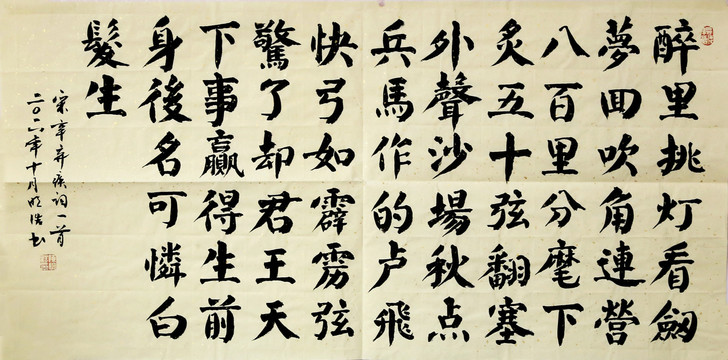 醉里挑灯看劔
夢回吹角連營
八百里分麾下
炙五十弦翻塞
外聲沙場秋点
兵馬作的卢飛
快弓如霹雳弦
驚了却君王天
下事贏得生前
身後名可憐白
髮生
宋辛弃疾词一首
二〇一六年十月明浩书